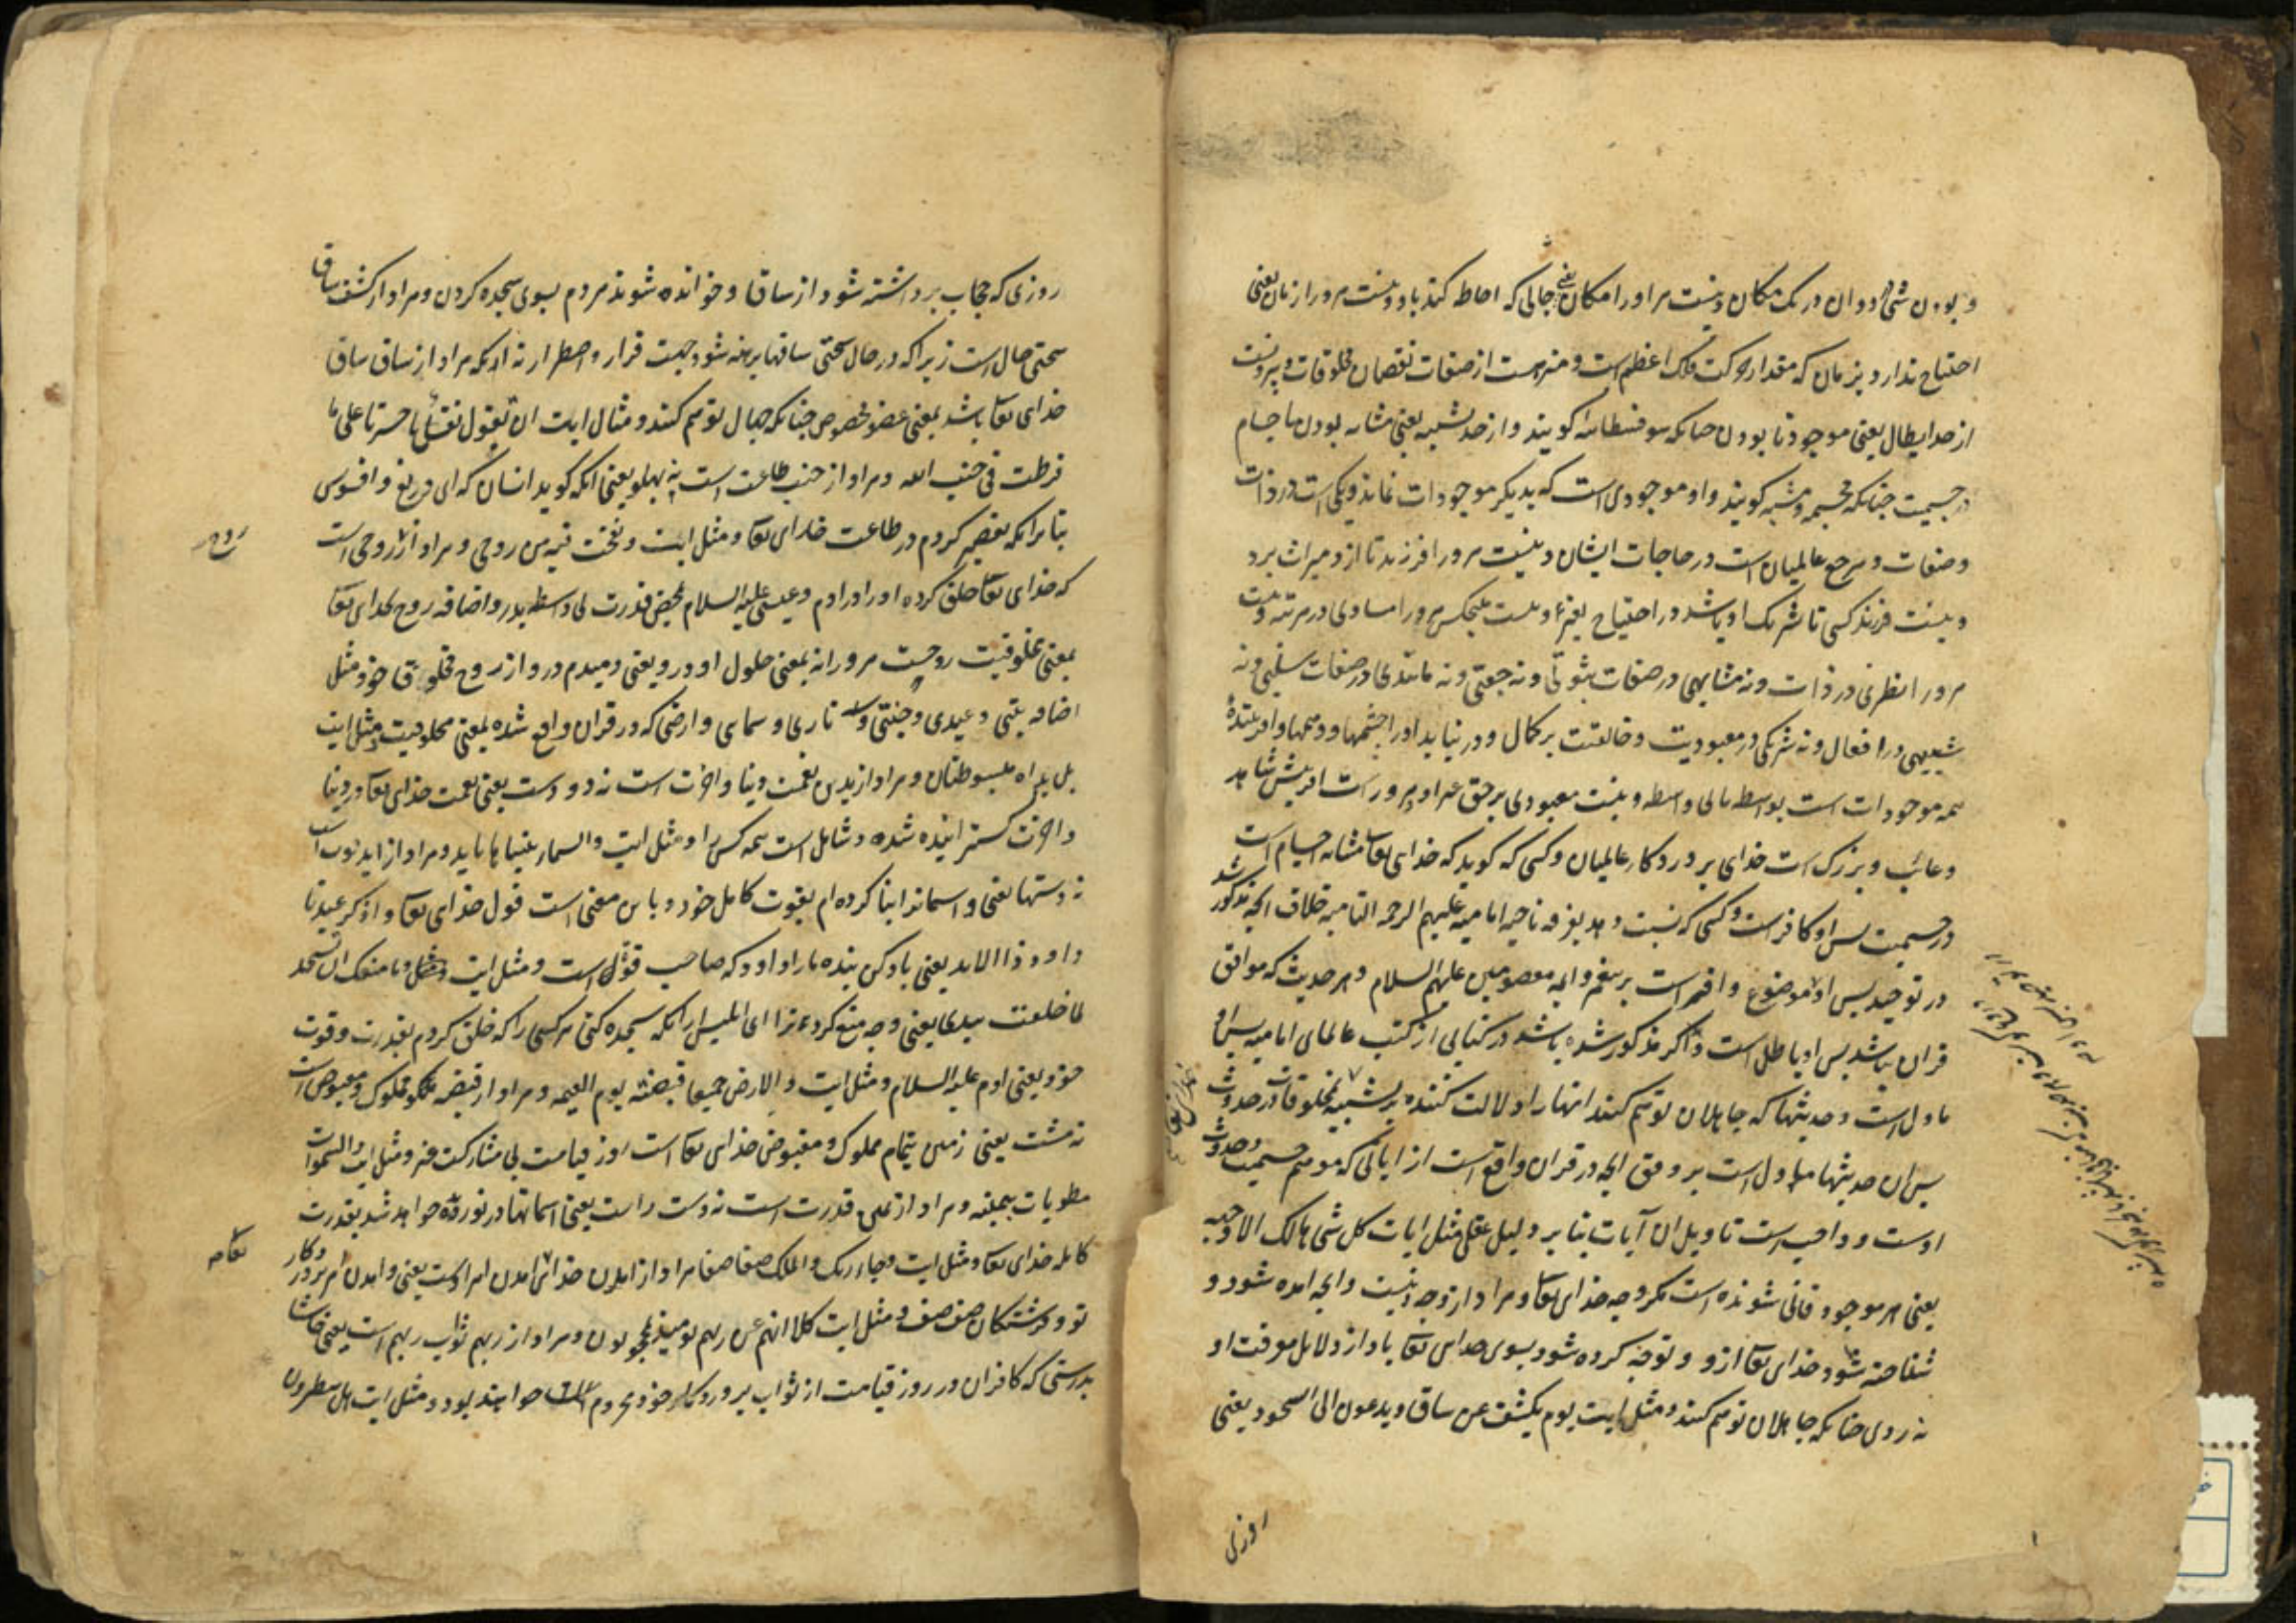 و بودن شیء دوان در یک مکان و نیست مر او را مکان یعنی جائی که احاطه کند باو و نیست مرورا زمان یعنی
احتیاج ندارد بزمان که مقدار حرکت فلک اعظم است و منزه است از صفات نقصان مخلوقات و بیرونست
از حد ابطال یعنی موجود نابودن چنانکه سوفسطائیه گویند و از حد تشبیه یعنی مشابه بودن باجسام
در جسمیت چنانکه مجسمه و مشبهه گویند و او موجودی است که بدیگر موجودات نماند و یکی است در ذات
و صفات و مرجع عالمیان است در حاجات ایشان و نیست مرورا فرزند تا ازو میراث برد
و نیست فرزند کسی تا شریک او باشد در احتیاج بغیر و نیست هیچکس مرورا مساوی در مرتبه و نیست
مرورا نظیری در ذات و نه مشابهی در صفات ثبوتی و نه جفتی و نه مانندی در صفات سلبی و نه
شبیهی در افعال و نه شریکی در معبودیت و خالقیت برکمال و در نیابد او را چشمها و وهمها و او
همه موجودات است بواسطه یا بی واسطه و نیست معبودی برحق غیر او مروراست آفرینش شاهد
و غائب و بزرگ است خدای پروردگار عالمیان و کسی که گوید که خدای تعا مشابه اجسام است
در جسمیت پس او کافر است و کسی که نسبت دهد بفرقه ناجیه امامیه علیهم الرحمه التامه خلاف آنچه مذکور شد
در توحید پس او موضوع و افتراست بر پیغمبر و ائمه معصومین علیهم السلام و هر حدیث که موافق
قران نباشد پس او باطل است و اگر مذکور شده باشد در کتابی از کتب عالمای امامیه پس او
ماول است و حدیثها که جاهلان توهم کنند انها را دلالت کننده بر تشبیه بمخلوقات در حدوث
پس ان حدیثها ماول است بر وفق آنچه در قران واقع است از ایاتی که موهم جسمیت و حدوث
اوست و واجب است تاویل ان آیات بنا بر دلیل عقلی مثل ایات کل شی هالک الا وجهه
یعنی هر موجود فانی شونده است مگر وجه خدای تعا و مراد از وجه دینست و آنچه امده شود و
شناخته شود خدای تعا ازو و توجه کرده شود بسوی خدای تعا باو از دلایل معرفت او
نه روی چنانکه جاهلان توهم کنند و مثل ایت یوم یکشف عن ساق و یدعون الی السجود یعنی
روزی
روزی که حجاب برداشته شود از ساقها و خوانده شوند مردم بسوی سجده کردن و مراد از کشف ساق
سختی حال است زیرا که در حال سختی ساقها برهنه شود جهت فرار و اضطرار نه آنکه مراد از ساق ساق
خدای تعا باشد بمعنی عضو مخصوص چنانکه جهال توهم کنند و مثال ایت ان تقول نفس یا حسرتا علی ما
فرطت فی جنب الله و مراد از جنب طاعت است نه پهلو یعنی آنکه گوید انسان که ای دریغ و افسوس
بنا برآنکه تقصیر کردم در طاعت خدای تعا و مثل ایت و نفخت فیه من روحی و مراد از روحی است
که خدای تعا خلق کرده او را در ادم و عیسی علیه السلام بمحض قدرت بی واسطه پدر و اضافه روح بخدای تعا
بمعنی مخلوقیت روحست مرورا نه بمعنی حلول او درو یعنی دمیدم درو از روح مخلوق خود مثل
اضافه بیتی و عبدی و جنتی و ناری و سمائی و ارضی که در قران واقع شده بمعنی مخلوقیت و مثل ایت
بل یداه مبسوطتان و مراد از یدین نعمت دنیا و اخرت است نه دو دست یعنی نعمت خدای تعا در دنیا
و اخرت گسترانیده شده و شامل است همه کس را و مثل ایت والسماء بنیناها باید و مراد از اید قوت است
نه دستها یعنی و اسمانرا بنا کرده ام بقوت کامل خود و باین معنی است قول خدای تعا و اذکر عبدنا
داود ذا الاید یعنی یاد کن بنده ما را داود که صاحب قوت است و مثل ایت و ما منعک ان تسجد
لما خلقت بیدی یعنی و چه منع کرد ترا ای ابلیس ازآنکه سجده کنی مرکسی را که خلق کردم بقدرت و قوت
خود یعنی ادم علیه السلام و مثل ایت و الارض جمیعا قبضته یوم القیمه و مراد از قبضه ملک و مملوک و مقبوض است
نه مشت یعنی زمین بتمام مملوک و مقبوض خدای تعا است روز قیامت بی مشارکت غیر و مثل ایت والسموات
مطویات بیمینه و مراد از یمین قدرت است نه دست راست یعنی اسمانها در نوردیده خواهد شد بقدرت
کامله خدای تعا و مثل ایت و جاء ربک والملک صفا صفا مراد از امدن خدای امدن امر اوست یعنی و امدن امر پروردگار
تو و فرشتگان صف صف و مثل ایت کلا انهم عن ربهم یومئذ لمحجوبون و مراد از ربهم ثواب ربهم است یعنی
بدرستی که کافران در روز قیامت از ثواب پروردگار خود محروم خواهند بود و مثل ایت هل ینظرون